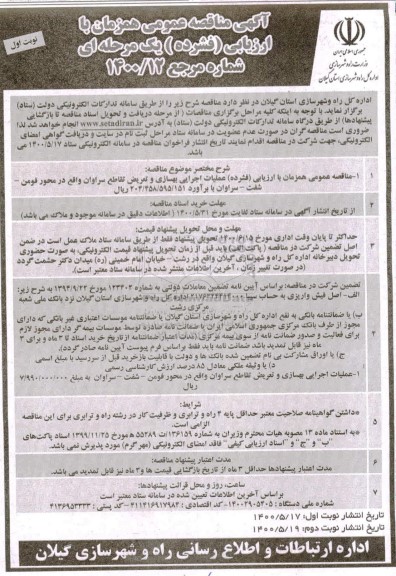 آگهی مناقصه عمومی همزمان با
ارزیابی (فشرده) یک مرحله ای
شماره مرجع ۱۴۰۰/۱۲
نوبت اول
جمهوری اسلامی ایران
وزارت راه و شهرسازی
اداره کل راه و شهرسازی استان گیلان
اداره کل راه وشهرسازی استان گیلان در نظر دارد مناقصه شرح زیر را از طریق سامانه تدارکات الکترونیکی دولت (ستاد)
برگزار نماید. با توجه به اینکه کلیه مراحل برگزاری مناقصات ( از مرحله دریافت و تحویل اسناد مناقصه تا بازگشایی
پیشنهادها) از طریق درگاه سامانه تدارکات الکترونیکی دولت (ستاد) به آدرس www.setadiran.ir انجام خواهد شد لذا
ضروری است مناقصه گران در صورت عدم عضویت در سامانه ستاد مراحل ثبت نام در سایت و دریافت گواهی امضای
الکترونیکی، جهت شرکت در مناقصه اقدام نمایند تاریخ انتشار فراخوان مناقصه در سامانه ستاد ۱۴۰۰/۵/۱۷ می
باشد.
شرح مختصر موضوع مناقصه:
۱ ۱-مناقصه عمومی همزمان با ارزیابی (فشرده) عملیات اجرایی بهسازی و تعریض تقاطع سراوان واقع در محور فومن -
شفت - سراوان با برآورد ۲۰۳/۴۵۸/۵۹۵/۱۵۱ ریال
۲ مهلت خرید اسناد مناقصه:
از تاریخ انتشار آگهی در سامانه ستاد لغایت مورخ ۱۴۰۰/۵/۳۱ ( اطلاعات دقیق در سامانه موجود و ملاک می باشد)
مهلت و محل تحویل پیشنهاد قیمت:
حداکثر تا پایان وقت اداری مورخ ۱۴۰۰/۶/۱۵ تحویل پیشنهاد فقط از طریق سامانه ستاد ملاک عمل است در ضمن
۳ اصل تضمین شرکت در مناقصه ( پاکت الف) باید قبل از زمان تحویل پیشنهاد قیمت الکترونیکی، به صورت حضوری
تحویل دبیرخانه اداره کل راه و شهرسازی گیلان واقع در رشت - خیابان امام خمینی (ره) میدان دکتر حشمت گردد
(در صورت تغییر زمان ، آخرین اطلاعات منتشر شده در سامانه ستاد معتبر است).
تضمین شرکت در مناقصه: براساس آیین نامه تضمین معاملات دولتی به شماره ۱۲۳۴۰۲ مورخ ۱۳۹۴/۹/۲۲ به شرح زیر:
الف- اصل فیش واریزی به حساب سیبا اداره کل راه و شهرسازی استان گیلان نزد بانک ملی شعبه
مرکزی رشت
ب) یا ضمانتنامه بانکی به نفع اداره کل راه و شهرسازی استان گیلان یا ضمانتنامه موسسات اعتباری غیر بانکی که دارای
مجوز از طرف بانک مرکزی جمهوری اسلامی ایران یا ضمانت نامه صادره توسط موسسات بیمه گر دارای مجوز لازم
۴ برای فعالیت و صدور ضمانت نامه از سوی بیمه مرکزی (مدت اعتبار ضمانتنامه از تاریخ خرید اسناد تا ۳ ماه و برای ۳
ماه نیز قابل تمدید باشد ضمانت نامه باید فقط براساس فرم پیوست آیین نامه صادر گردد).
ج) یا اوراق مشارکت بی نام تضمین شده بانک ها و دولت با قابلیت بازخرید قبل از سررسید با مبلغ اسمی
د) یا وثیقه ملکی معادل ۸۵ درصد ارزش کارشناسی رسمی
۱-عملیات اجرایی بهسازی و تعریض تقاطع سراوان واقع در محور فومن - شفت - سراوان به مبلغ ۷/۹۹۰/۰۰۰/۰۰۰
ریال
شرایط:
*داشتن گواهینامه صلاحیت معتبر حداقل پایه ۴ راه و ترابری و ظرفیت کار در رشته راه و ترابری برای این مناقصه
۵ الزامی است.
*به استناد ماده ۱۳ مصوبه هیات محترم وزیران به شماره ۱۳۶۱۵۹/ت ۵۵۲۸۹ ه مورخ ۱۳۹۹/۱۱/۲۵ اسناد پاکت های
"ب" و "ج" و "اسناد ارزیابی کیفی" فاقد امضای الکترونیکی (مهر گرم) مورد پذیرش نمی باشد.
۶ مدت اعتبار پیشنهاد مناقصه:
مدت اعتبار پیشنهادها حداقل ۳ ماه از تاریخ بازگشایی قیمت ها و ۳ ماه نیز قابل تمدید می باشد.
ساعت، روز و محل قرائت پیشنهادها:
۷ براساس آخرین اطلاعات تعیین شده در سامانه ستاد معتبر است
شماره ملی دستگاه : ۱۴۰۰۰۲۹۰۵۴۰۵ -کد اقتصادی : ۴۱۱۳۱۶۹۱۷۹۸۳ -کد پستی : ۴۱۳۶۹۵۳۳۳۳
تاریخ انتشار نوبت اول: ۱۴۰۰/۵/۱۷
تاریخ انتشار نوبت دوم: ۱۴۰۰/۵/۱۹
اداره ارتباطات و اطلاع رسانی راه و شهرسازی گیلان